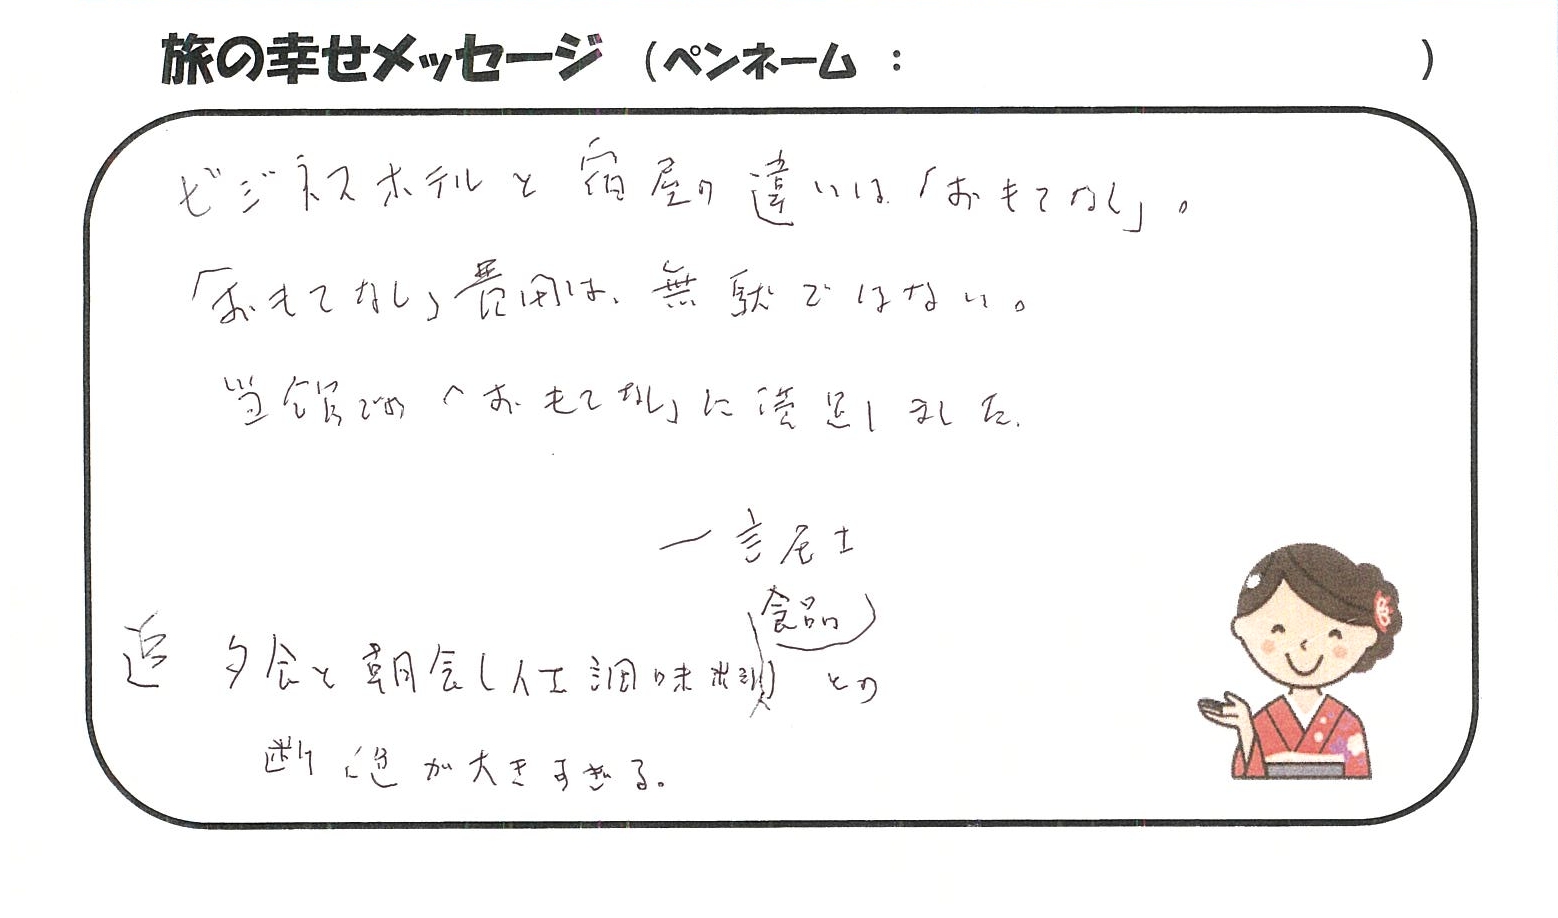 旅の幸せメッセージ （ペンネーム： ）
ビジネスホテルと宿屋の違いは「おもてなし」。
「おもてなし」費用は、無駄ではない。
当館での「おもてなし」に満足しました。
一言居士
食品
追 夕食と朝食 調味料 との
断 が大きすぎる。